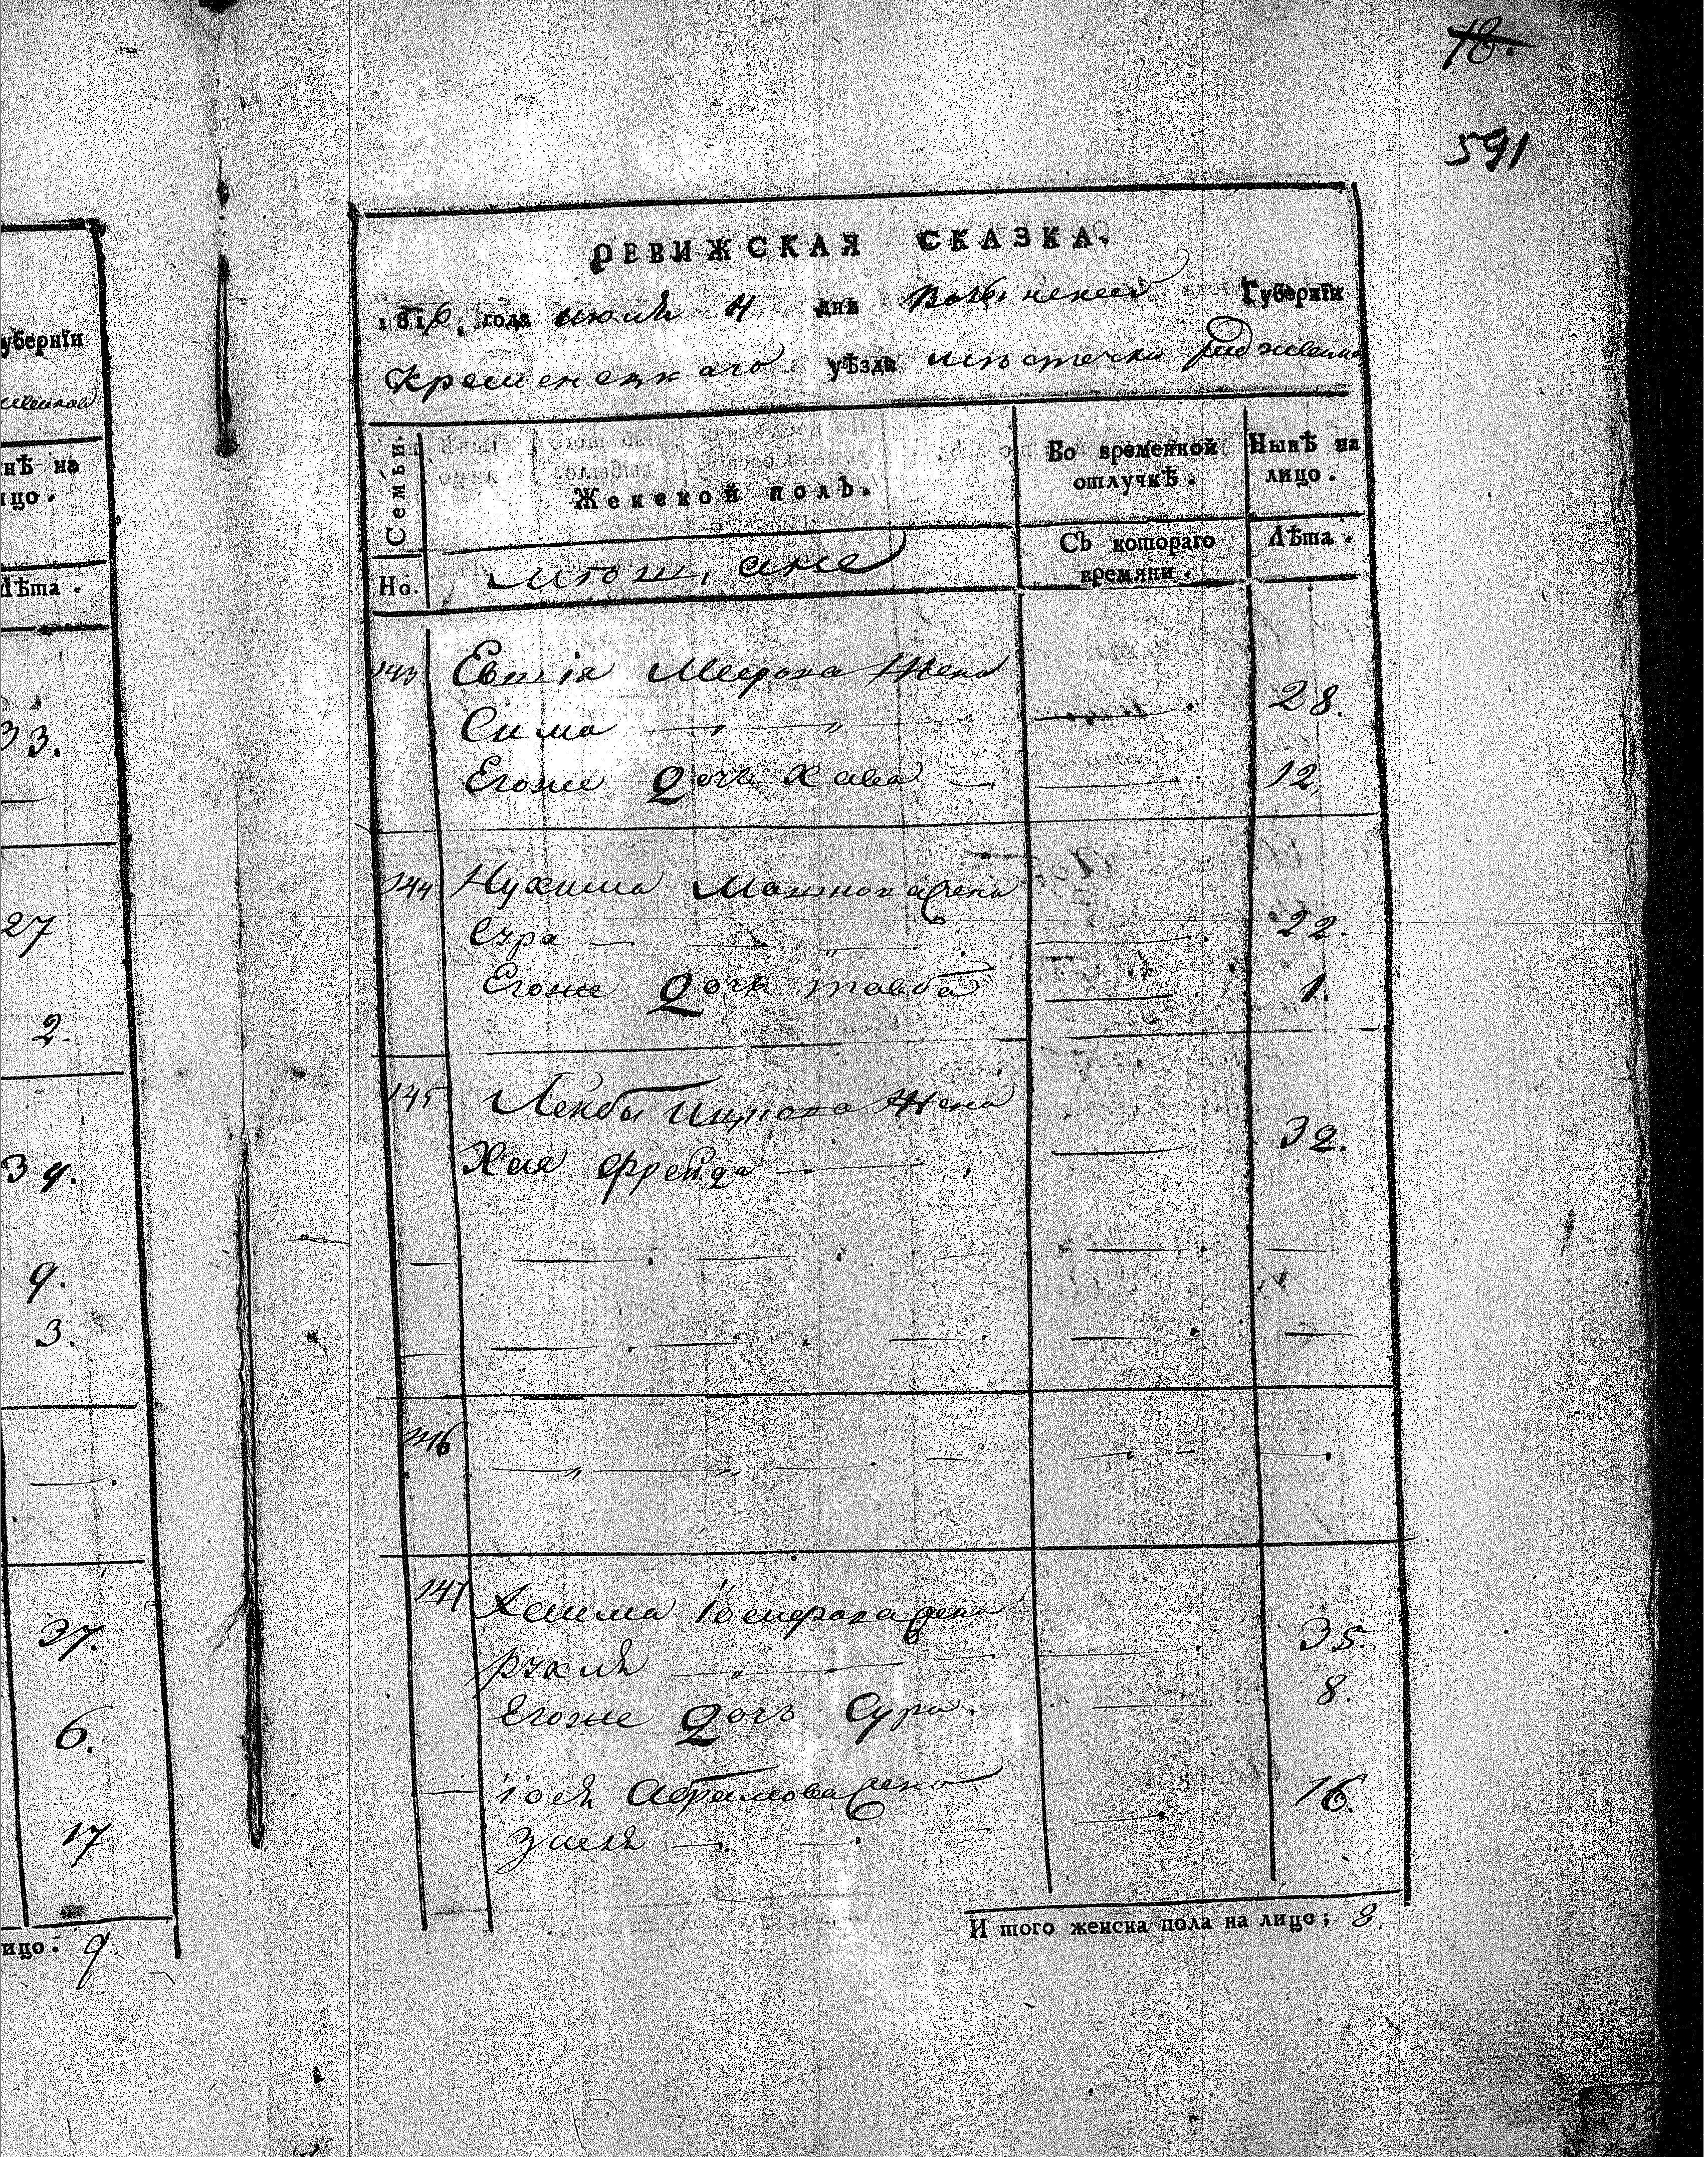 18.
591
РЕВИЖСКАЯ СКАЗКА.
181 года июля 4 дня Волынской Губернїи
Кременецкаго уѣзда местечка
Семьи.
Но.
Женской полъ.
Во временной отлучкѣ.
Съ котораго времяни.
Нынѣ на лицо.
Лѣта.
143 Меерова жена
Сима 28.
Егоже дочь Хава 12
144 Нухима жена
Сура 22.
Егоже дочь тавба 1.
145 Лейбы Ицкова жена
Хая фрейда 32.
146
147 Хаима Іосифова жена
рухля 35.
Егоже дочь Сура. 8.
Іося Абрамова жена 16.
зисля
И того женска пола на лицо; 8.
уберніи
нѣ на
ицо.
Лѣта.
33.
27
2.
39.
9.
3.
37.
6.
17
ицо: 9